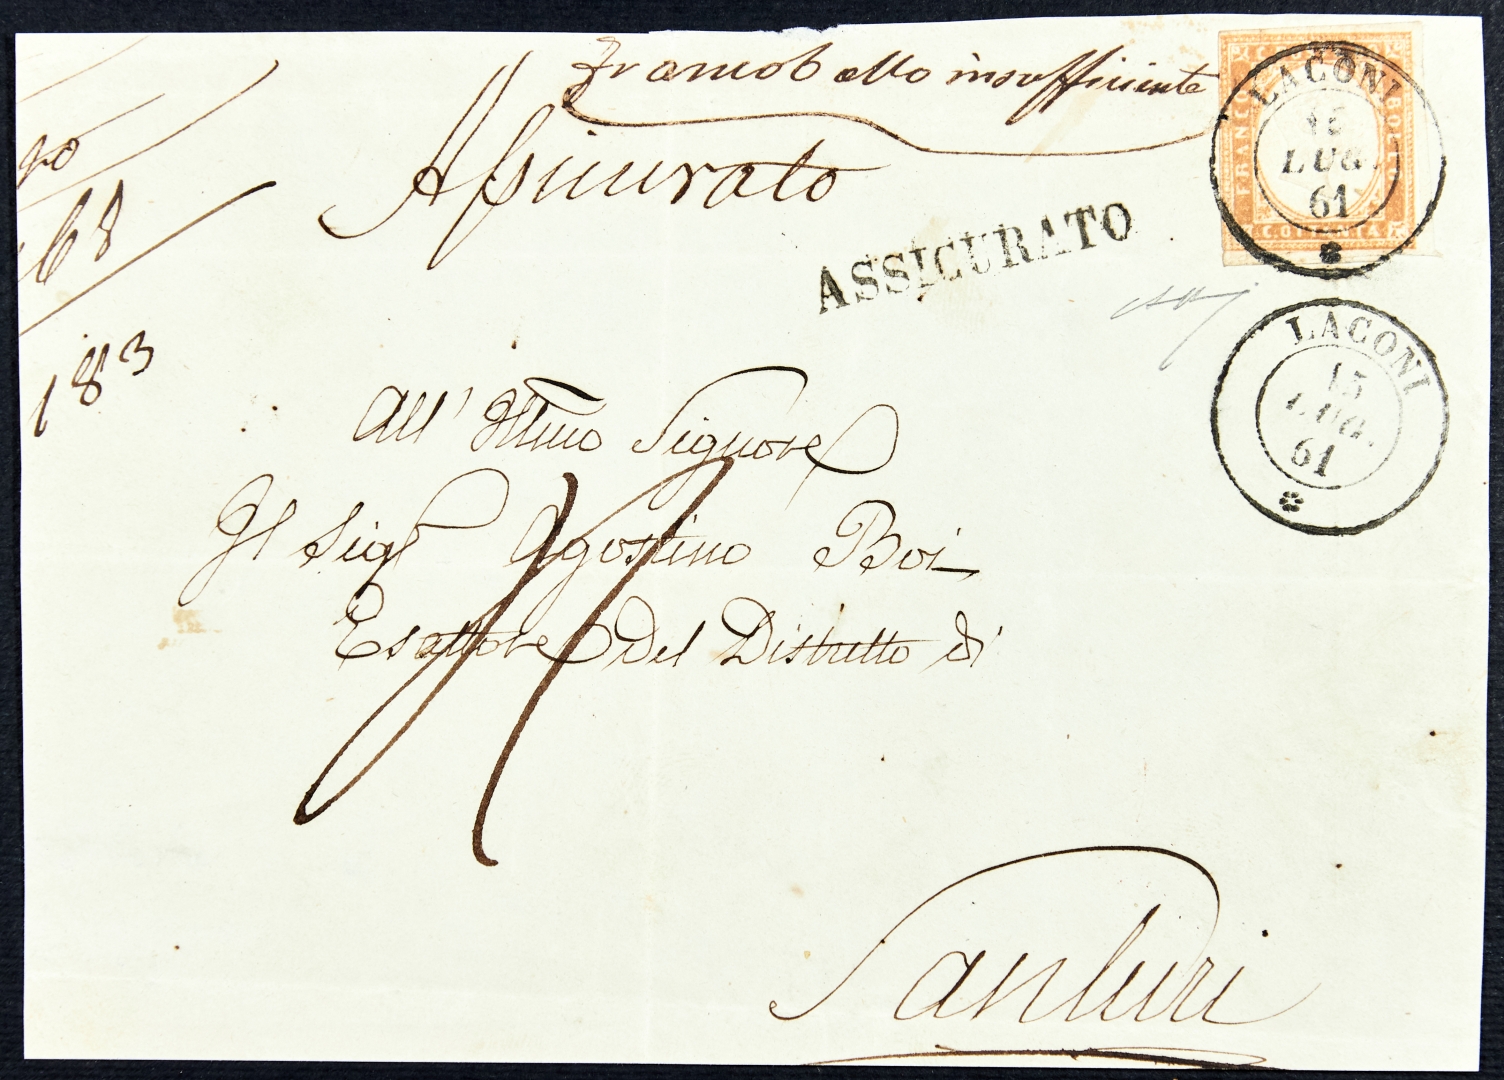 Francobollo insufficiente
Assicurato
ASSICURATO
FRANCO BOLLO
C. OTTANTA
LACONI
15
LUG.
61
LACONI
15
LUG.
61
68
183
All' Illmo Signore
Il Sigr Agostino Boi
Esattore Del Distretto di
Sanluri